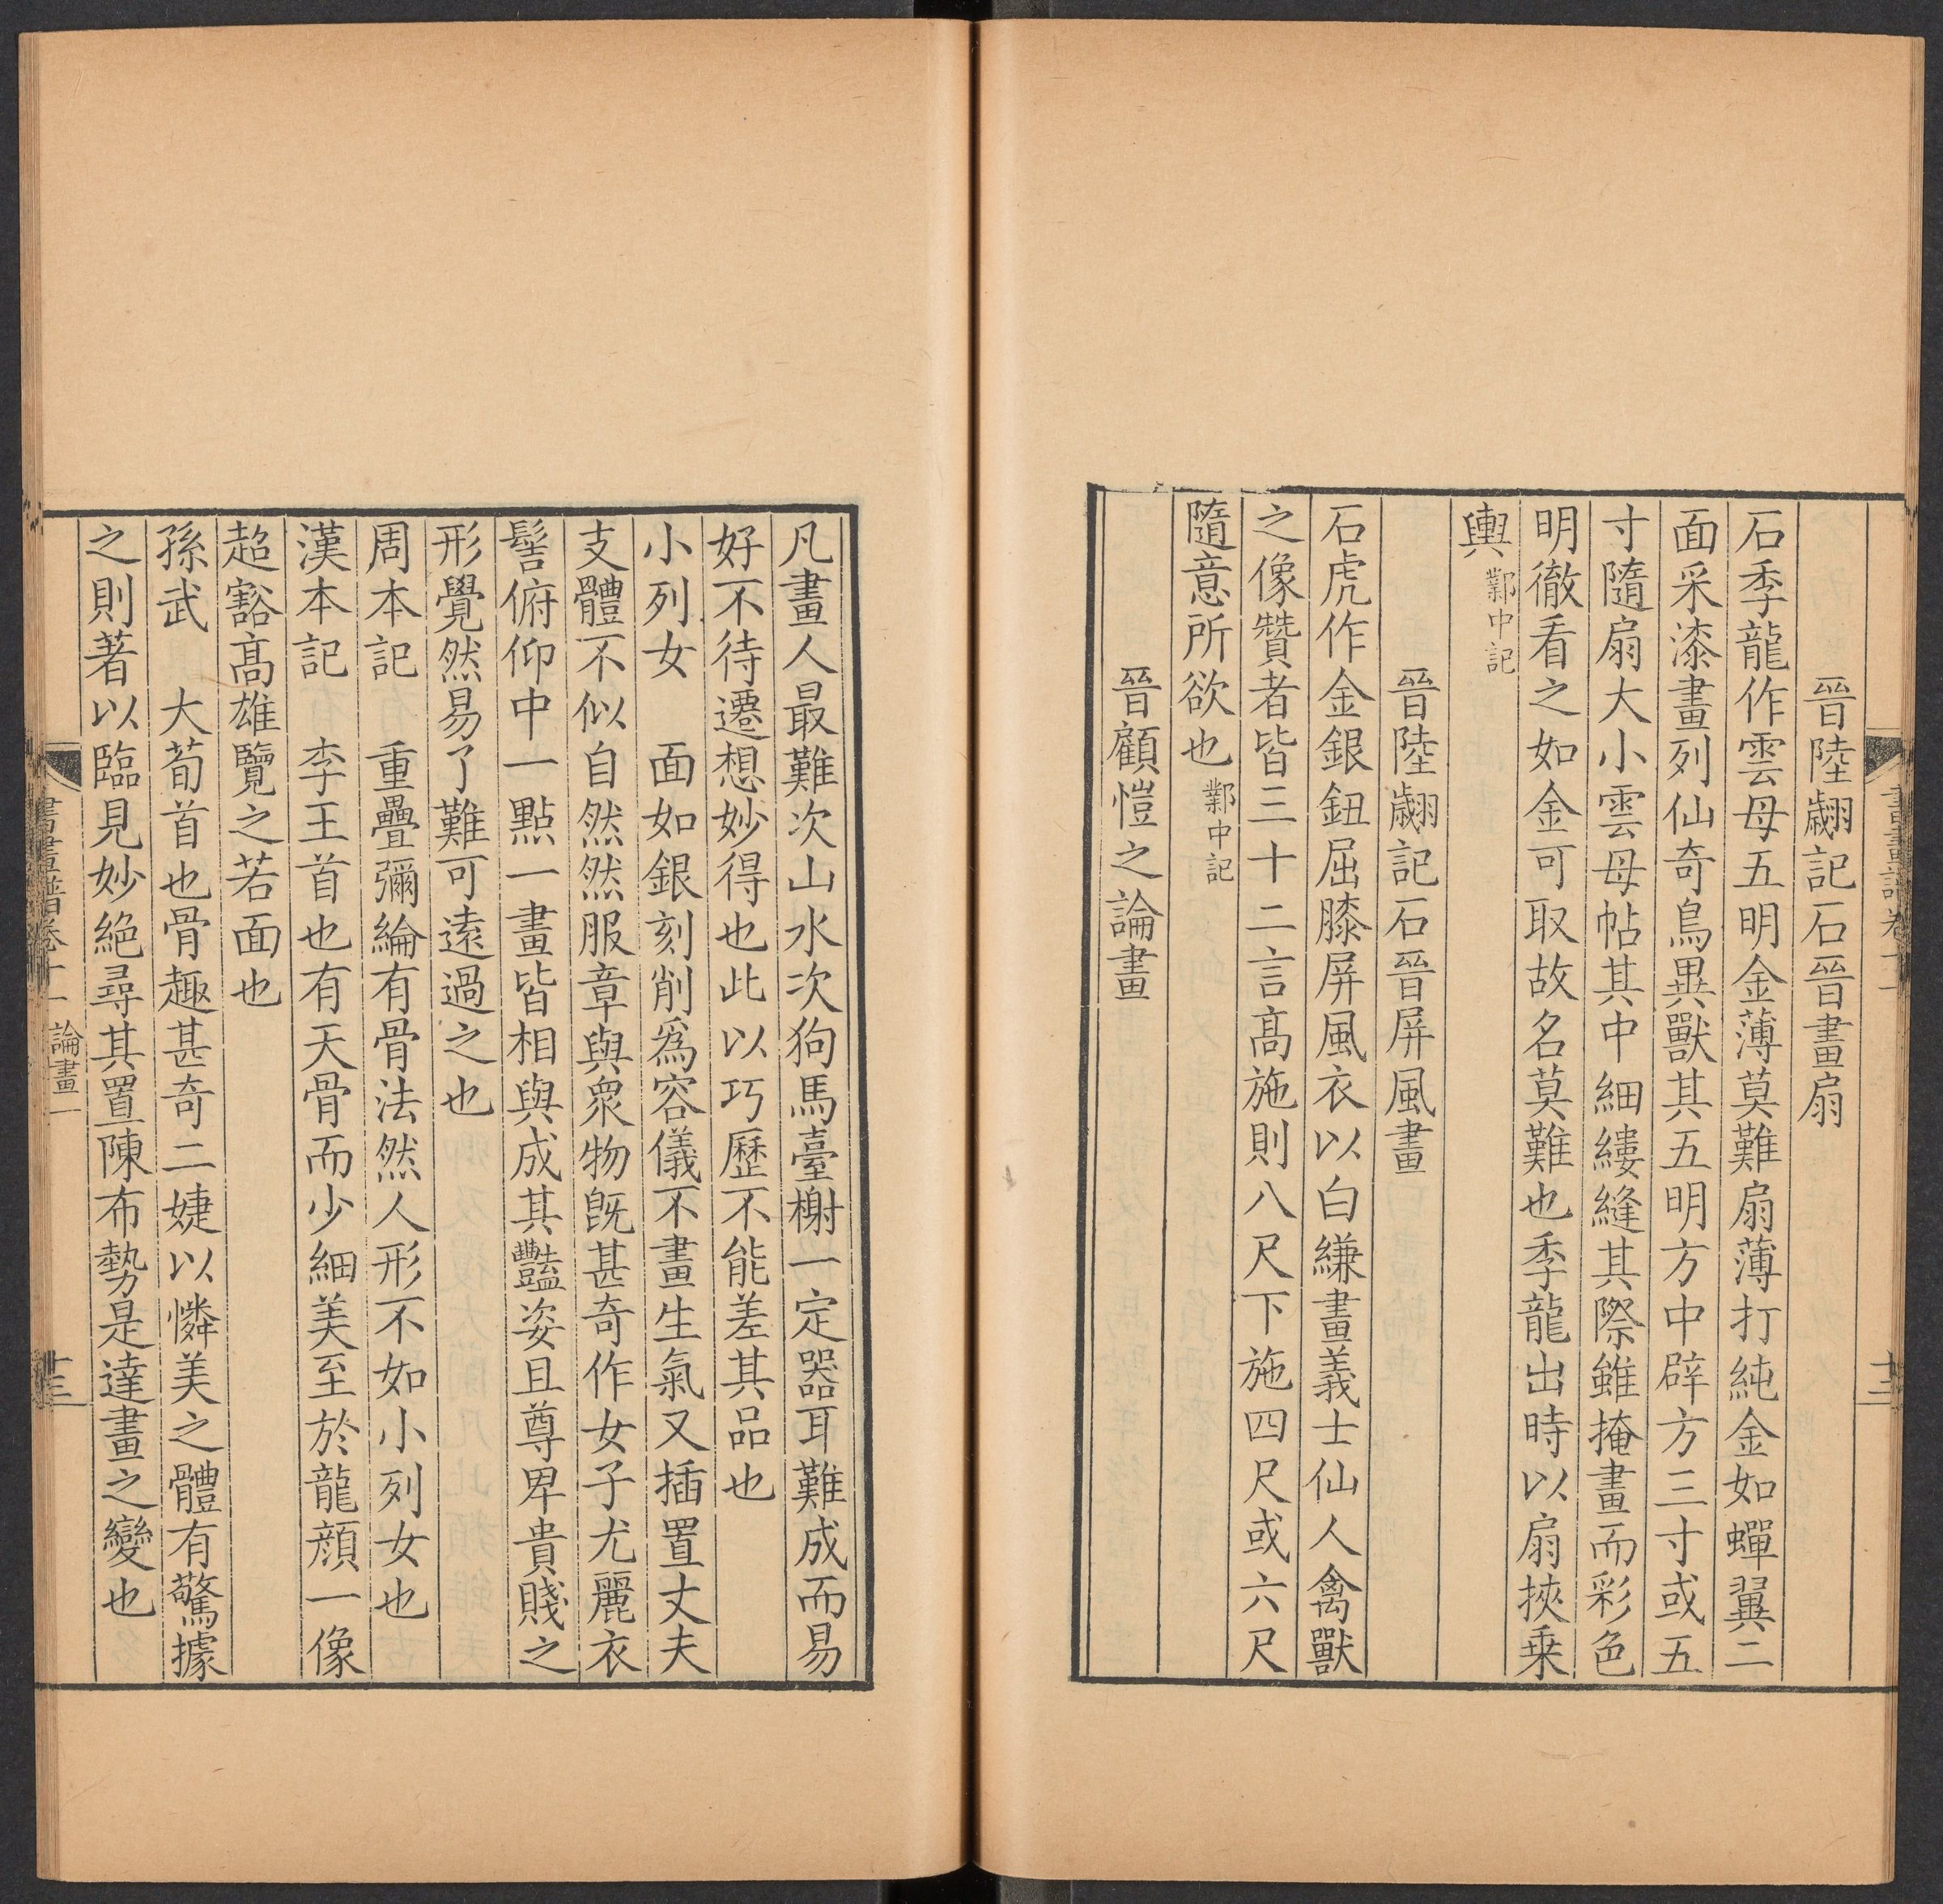 晉陸翽記石晉畫扇
石季龍作雲母五明金薄莫難扇薄打純金如蟬翼二
面采漆畫列仙奇鳥異獸其五明方中辟方三寸或五
寸隨扇大小雲母帖其中細縷縫其際雖掩畫而彩色
明徹看之如金可取故名莫難也季龍出時以扇挾乗
輿鄴中記
晉陸翽記石晉屏風畫
石虎作金銀鈕屈膝屏風衣以白縑畫義士仙人禽獸
之像贊者皆三十二言髙施則八尺下施四尺或六尺
隨意所欲也鄴中記
晉顧愷之論畫
凡畫人最難次山水次狗馬臺榭一定器耳難成而易
好不待遷想妙得也此以巧歷不能差其品也
小列女 面如銀刻削爲容儀不畫生氣又插置丈夫
支體不似自然然服章與衆物旣甚奇作女子尤麗衣
髻俯仰中一點一畫皆相與成其豔姿且尊卑貴賤之
形覺然易了難可遠過之也
周本記 重疊彌綸有骨法然人形不如小列女也
漢本記 李王首也有天骨而少細美至於龍顔一像
超豁髙雄覽之若面也
孫武 大荀首也骨趣甚奇二婕以憐美之體有驚據
之則著以臨見妙絕尋其置陳布勢是達畫之變也
書畫譜卷十一 論畫一
十三